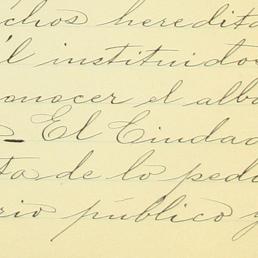 chos heredita
él instituido
onocer el alba
- El Ciudad
to de lo pedi
rio público y